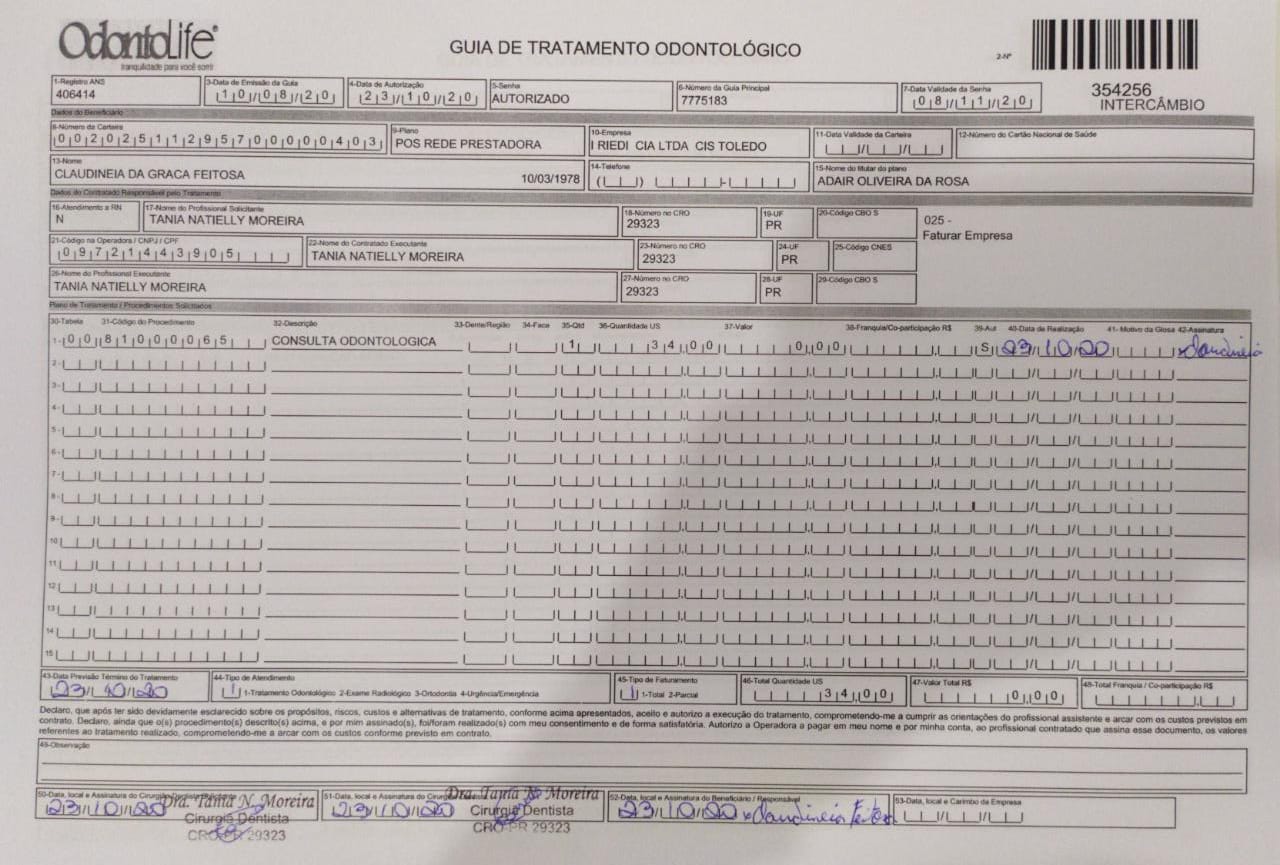 OdontoLife®
tranquilidade para você sorrir
GUIA DE TRATAMENTO ODONTOLÓGICO
2-Nº
354256
INTERCÂMBIO
1-Registro ANS
406414
3-Data de Emissão da Guia
10/08/20
4-Data de Autorização
23/10/20
5-Senha
AUTORIZADO
6-Número da Guia Principal
7775183
7-Data Validade da Senha
08/11/20
Dados do Beneficiário
8-Número da Carteira
00202511295700000403
9-Plano
POS REDE PRESTADORA
10-Empresa
I RIEDI CIA LTDA CIS TOLEDO
11-Data Validade da Carteira
12-Número do Cartão Nacional de Saúde
13-Nome
CLAUDINEIA DA GRACA FEITOSA 10/03/1978
14-Telefone
15-Nome do titular do plano
ADAIR OLIVEIRA DA ROSA
Dados do Contratado Responsável pelo Tratamento
16-Atendimento a RN
N
17-Nome do Profissional Solicitante
TANIA NATIELLY MOREIRA
18-Número no CRO
29323
19-UF
PR
20-Código CBO S
025 -
Faturar Empresa
21-Código na Operadora / CNPJ / CPF
09721443905
22-Nome do Contratado Executante
TANIA NATIELLY MOREIRA
23-Número no CRO
29323
24-UF
PR
25-Código CNES
26-Nome do Profissional Executante
TANIA NATIELLY MOREIRA
27-Número no CRO
29323
28-UF
PR
29-Código CBO S
Plano de Tratamento / Procedimentos Solicitados
30-Tabela 31-Código do Procedimento 32-Descrição 33-Dente/Região 34-Face 35-Qtd 36-Quantidade US 37-Valor 38-Franquia/Co-participação R$ 39-Aut 40-Data de Realização 41- Motivo da Glosa 42-Assinatura
1- 00 81000065 CONSULTA ODONTOLOGICA 1 34,00 0,00 S 23/10/20 Claudineia
2-
3-
4-
5-
6-
7-
8-
9-
10
11
12
13
14
15
43-Data Previsão Término do Tratamento
23/10/20
44-Tipo de Atendimento
1 1-Tratamento Odontológico 2-Exame Radiológico 3-Ortodontia 4-Urgência/Emergência
45-Tipo de Faturamento
1 1-Total 2-Parcial
46-Total Quantidade US
34,00
47-Valor Total R$
0,00
48-Total Franquia / Co-participação R$
Declaro, que após ter sido devidamente esclarecido sobre os propósitos, riscos, custos e alternativas de tratamento, conforme acima apresentados, aceito e autorizo a execução do tratamento, comprometendo-me a cumprir as orientações do profissional assistente e arcar com os custos previstos em
contrato. Declaro, ainda que o(s) procedimento(s) descrito(s) acima, e por mim assinado(s), foi/foram realizado(s) com meu consentimento e de forma satisfatória. Autorizo a Operadora a pagar em meu nome e por minha conta, ao profissional contratado que assina esse documento, os valores
referentes ao tratamento realizado, comprometendo-me a arcar com os custos conforme previsto em contrato.
49-Observação
50-Data, local e Assinatura do Cirurgião-Dentista Solicitante
23/10/20
Dra. Tania N. Moreira
Cirurgiã Dentista
CRO-PR 29323
51-Data, local e Assinatura do Cirurgião-Dentista
23/10/20
Dra. Tania N. Moreira
Cirurgiã Dentista
CRO-PR 29323
52-Data, local e Assinatura do Beneficiário / Responsável
23/10/20 x Claudineia Feitosa
53-Data, local e Carimbo da Empresa